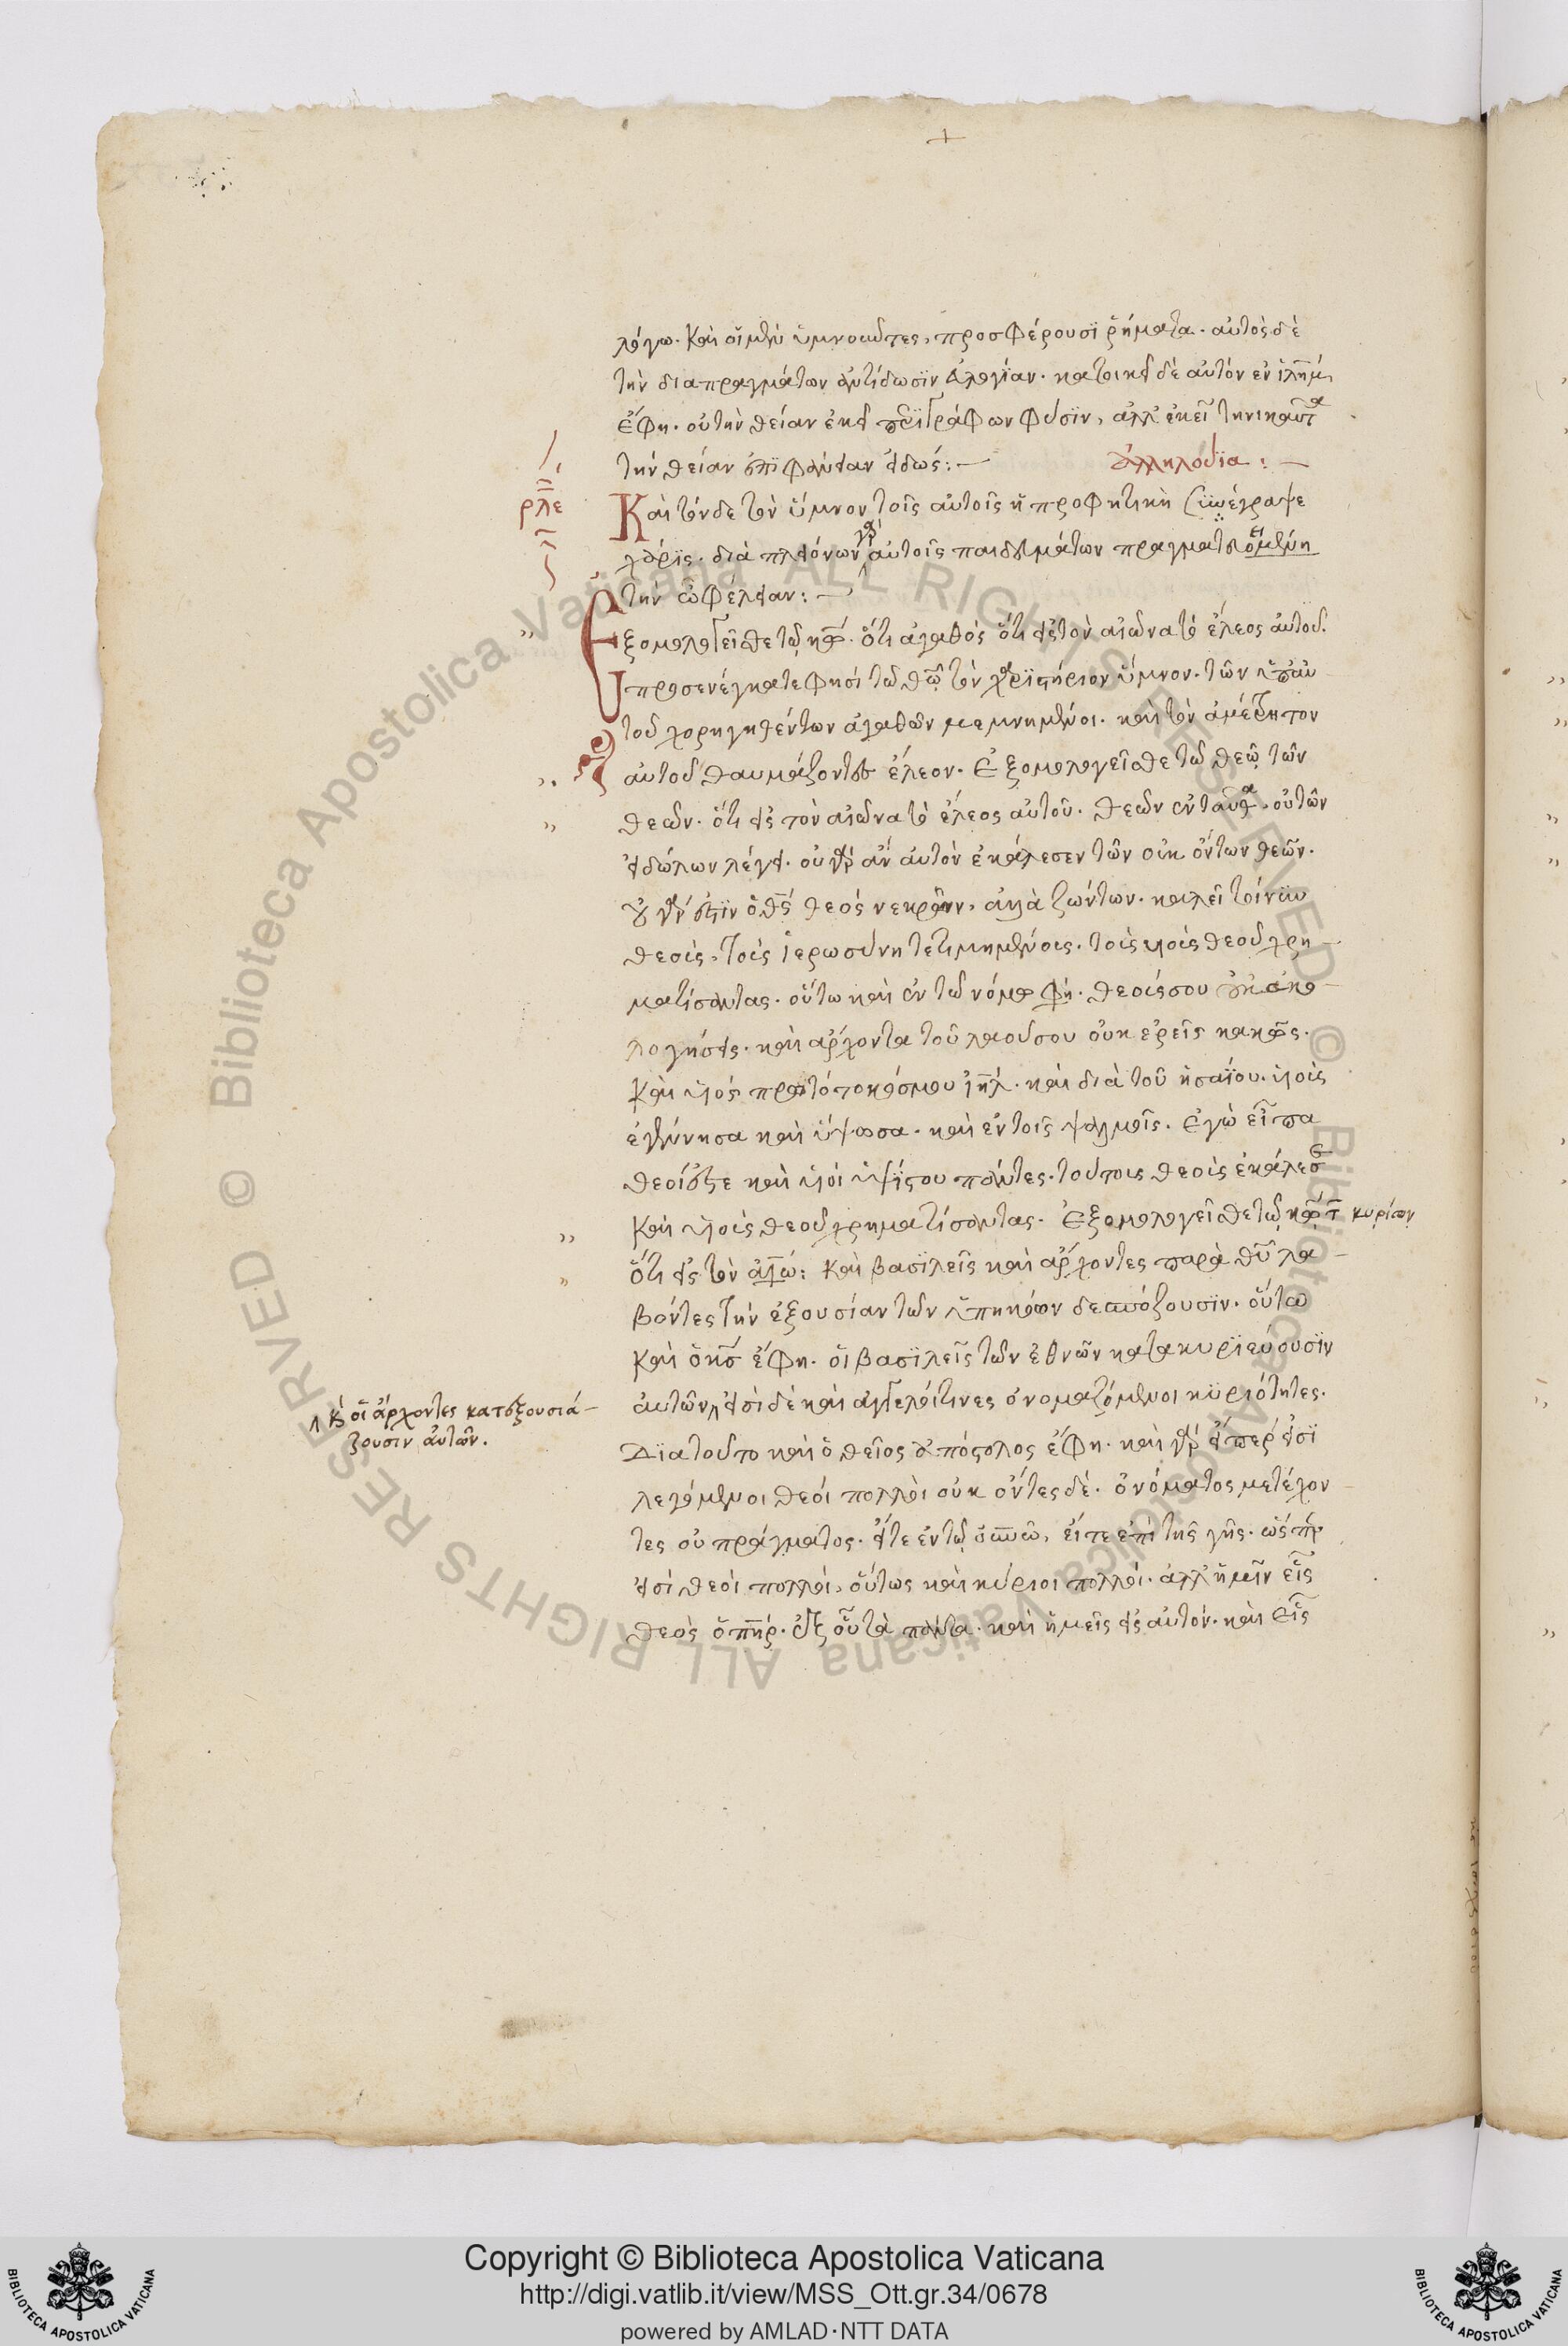 +
λόγω. καὶ οἱ μὲν ὑμνοῦντες, προσφέρουσι ῥήματα. αὐτὸς δὲ
τὴν διαπραγμάτων ἀντίδωσιν εὐλογίαν. κατοικεῖ δὲ αὐτὸν ἐν ἱλημ
ἔφη. οὐ τὴν θείαν ἐκεῖ περιγράφων φύσιν, ἀλλ' ἐκεῖ τηνικαῦτα
τὴν θείαν ἐπιφάνειαν εἰδώς:—
ἀλληλούϊα:—
ρλε
Καὶ τόνδε τὸν ὕμνον τοῖς αὐτοῖς ἡ προφητικὴ συνέγραψε
χάρις. διὰ πλειόνων γὰρ αὐτοῖς παιδευμάτων πραγματευομένη
τὴν ὠφέλειαν:—
Ἐξομολογεῖσθε τῷ κῳ. ὅτι ἀγαθός ὅτι εἰς τὸν αἰῶνα τὸ ἔλεος αὐτοῦ.
προσενέγκατε φησὶ τῷ θῷ τὸν χαριστήριον ὕμνον. τῶν ὑπ' αὐ
τοῦ χορηγηθέντων ἀγαθῶν μεμνημένοι. καὶ τὸν ἀμέτρητον
αὐτοῦ θαυμάζοντες ἔλεον. Ἐξομολογεῖσθε τῷ θεῷ τῶν
θεῶν. ὅτι εἰς τὸν αἰῶνα τὸ ἔλεος αὐτοῦ. θεῶν ἐνταῦθα. οὐ τῶν
εἰδώλων λέγει. οὐ γὰρ ἂν αὐτὸν ἐκάλεσεν τῶν οὐκ ὄντων θεῶν.
οὐ γὰρ ἔστιν ὁ θς θεὸς νεκρῶν, ἀλλὰ ζώντων. καλεῖ τοίνυν
θεοὺς, τοὺς ἱερωσύνῃ τετιμημένους. τοὺς υἱοὺς θεοῦ χρη
ματίσαντας. οὕτω καὶ ἐν τῷ νόμω φη. θεούς σου οὐ κακο
λογήσεις. καὶ ἄρχοντα τοῦ λαοῦ σου οὐκ ἐρεῖς κακῶς.
καὶ υἱὸς πρωτότοκός μου ιηλ. καὶ διὰ τοῦ ἡσαΐου. υἱοὺς
ἐγέννησα καὶ ὕψωσα. καὶ ἐν τοῖς ψαλμοῖς. Ἐγὼ εἶπα
θεοί ἐστε καὶ υἱοὶ ὑψίστου πάντες. τούτους θεοὺς ἐκάλεσε
καὶ υἱοὺς θεοῦ χρηματίσαντας. Ἐξομολογεῖσθε τῷ κῳ τ κυρίων
ὅτι εἰς τὸν αἰῶ: καὶ βασιλεῖς καὶ ἄρχοντες παρὰ θῦ λα
βόντες τὴν ἐξουσίαν τῶν ὑπηκόων δεσπόζουσιν. οὕτω
καὶ ὁ κς ἔφη. οἱ βασιλεῖς τῶν ἐθνῶν κατακυριεύουσιν
αὐτῶν, εἰσὶ δὲ καὶ ἄγγελοί τινες ὀνομαζόμενοι κυριότητες.
καὶ οἱ ἄρχοντες κατεξουσιά-
ζουσιν αὐτῶν.
Διατοῦτο καὶ ὁ θεῖος ἀπόστολος ἔφη. καὶ γὰρ εἴπερ εἰσὶ
λεγόμενοι θεοὶ πολλοὶ οὐκ ὄντες δέ. ὀνόματος μετέχον
τες οὐ πράγματος. εἴτε ἐν τῷ οὐνῶ, εἴτε ἐπὶ τῆς γῆς. ὥσπερ
εἰσὶ θεοὶ πολλοί, οὕτως καὶ κύριοι πολλοί. ἀλλ' ἡμῖν εἷς
θεὸς ὁ πηρ. ἐξ οὗ τὰ πάντα. καὶ ἡμεῖς εἰς αὐτόν. καὶ εἷς
Biblioteca Apostolica Vaticana ALL RIGHTS RESERVED © Biblioteca Apostolica Vaticana ALL RIGHTS RESERVED ©
Copyright © Biblioteca Apostolica Vaticana
http://digi.vatlib.it/view/MSS_Ott.gr.34/0678
powered by AMLAD·NTT DATA
BIBLIOTECA APOSTOLICA VATICANA
BIBLIOTECA APOSTOLICA VATICANA